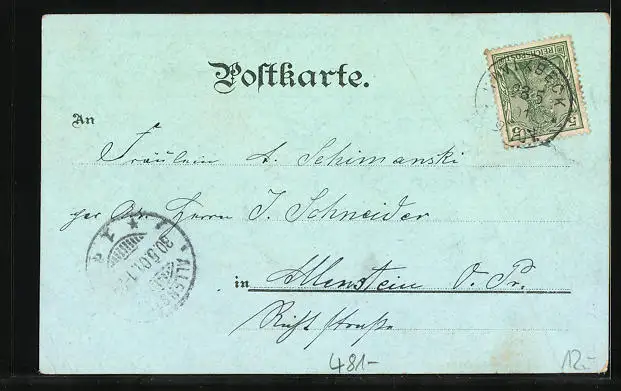 Postkarte.
REICHSPOST
5 5
BECK
28 5
An
Fräulein A. Schimanski
per Adr. Herrn J. Schneider
30.5.01.
ALLENST
in Allenstein O. Pr.
481-
12-